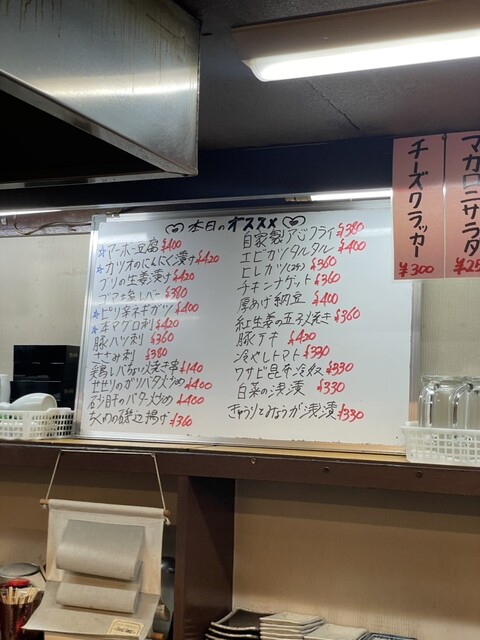 本日のオススメ
☆マーボー豆腐 ¥400
☆カツオのにんにく漬け ¥420
ブリの生姜漬け ¥420
¥380
☆ピリ辛ネギガツ ¥400
☆本マグロ刺 ¥420
豚ハツ刺 ¥360
ささみ刺 ¥380
鶏レバーの焼き串 ¥140
せせりのガリバタ ¥400
砂肝のバター ¥400
ちくわの磯辺揚げ ¥360
自家製アジフライ ¥380
エビカツタルタル ¥400
ヒレカツ(2ヶ) ¥360
チキンナゲット ¥360
厚あげ納豆 ¥400
紅生姜の玉子焼き ¥360
豚テキ ¥420
冷やしトマト ¥330
ワサビ昆布冷奴 ¥330
白菜の浅漬 ¥330
きゅうりとみょうが浅漬 ¥330
チーズクラッカー
¥300
マカロニサラダ